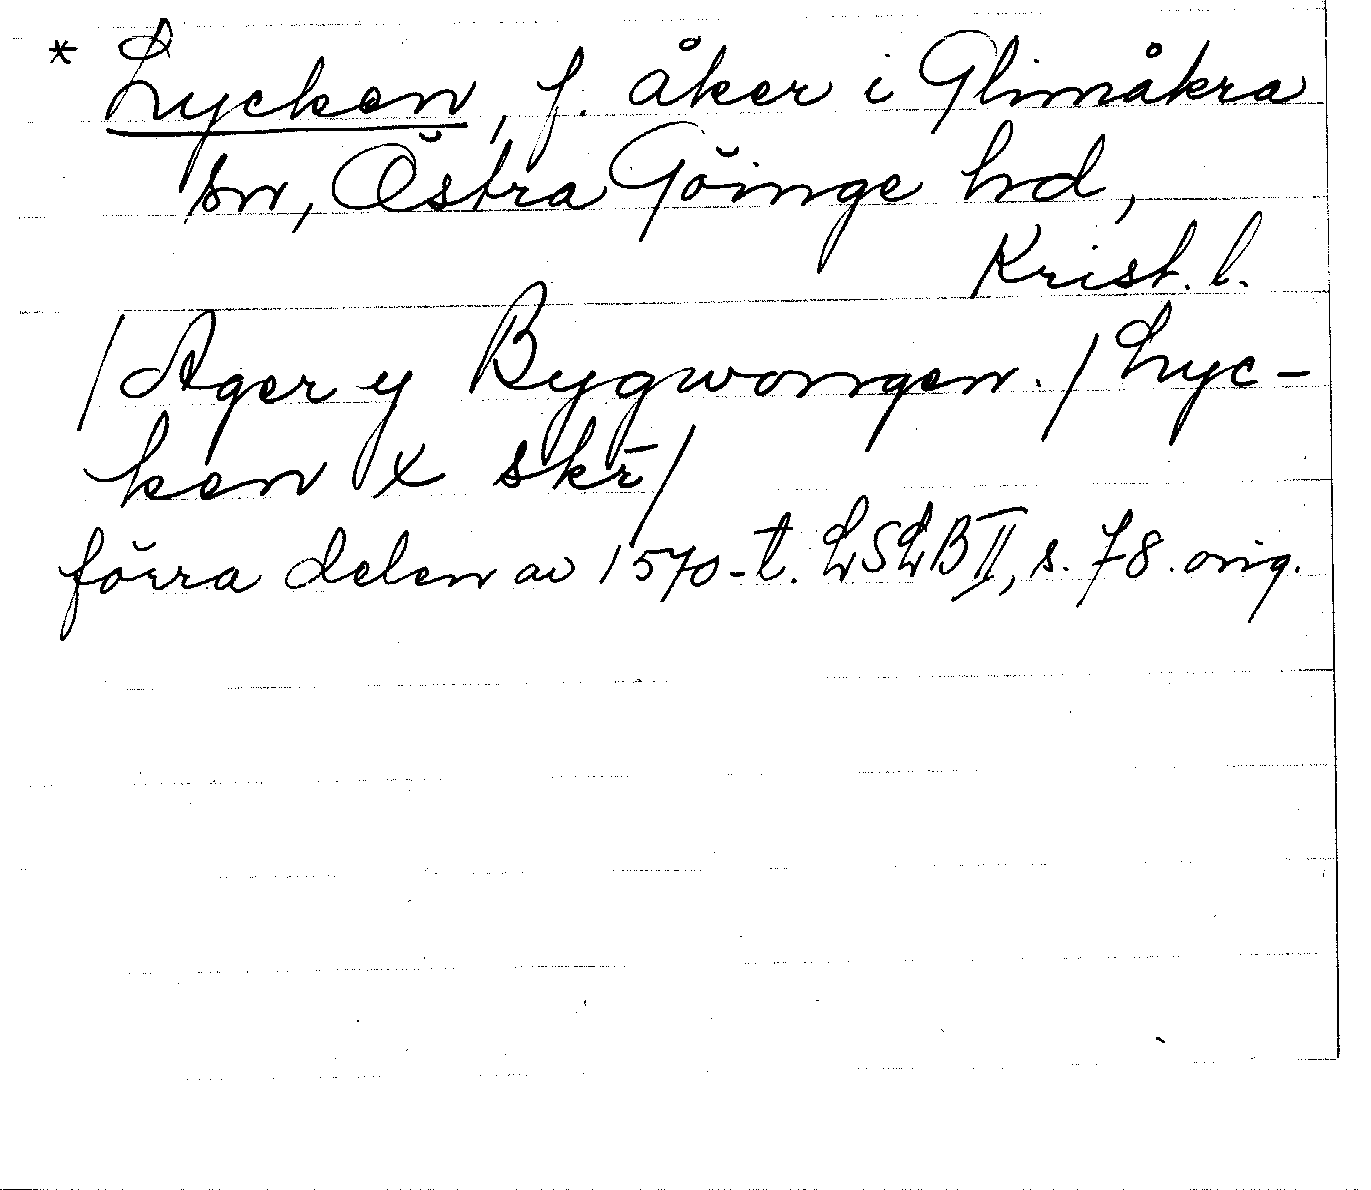 * Lycken, f. åker i Glimåkra
sn, Östra Göinge hd,
Krist. l.
/Ager y Bygwongen./Lyc-
ken x skr̄/
förra delen av 1570-t. LSLB II, s. 78. orig.